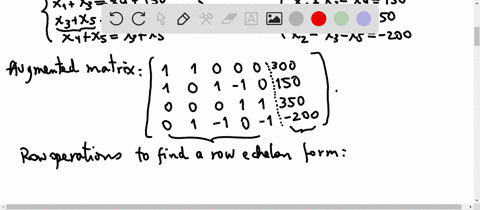 x₁ + x₃ =
x₃+x₅
x₄+x₅ = x₃+x₅
50
x₂ - x₃ - x₅ = -200
Augmented matrix:
1 1 0 0 0 300
1 0 1 -1 0 150
0 0 0 1 1 350
0 1 -1 0 -1 -200
Row operations to find a row echelon form: